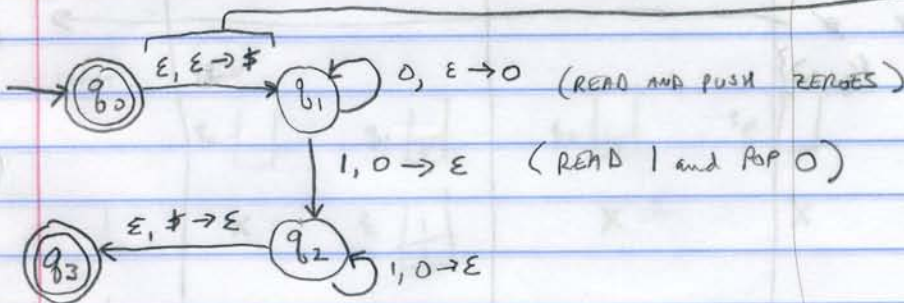 ε, ε → $
q0
q1
0, ε → 0 (READ AND PUSH ZEROES)
1, 0 → ε (READ 1 and POP 0)
ε, $ → ε
q3
q2
1, 0 → ε